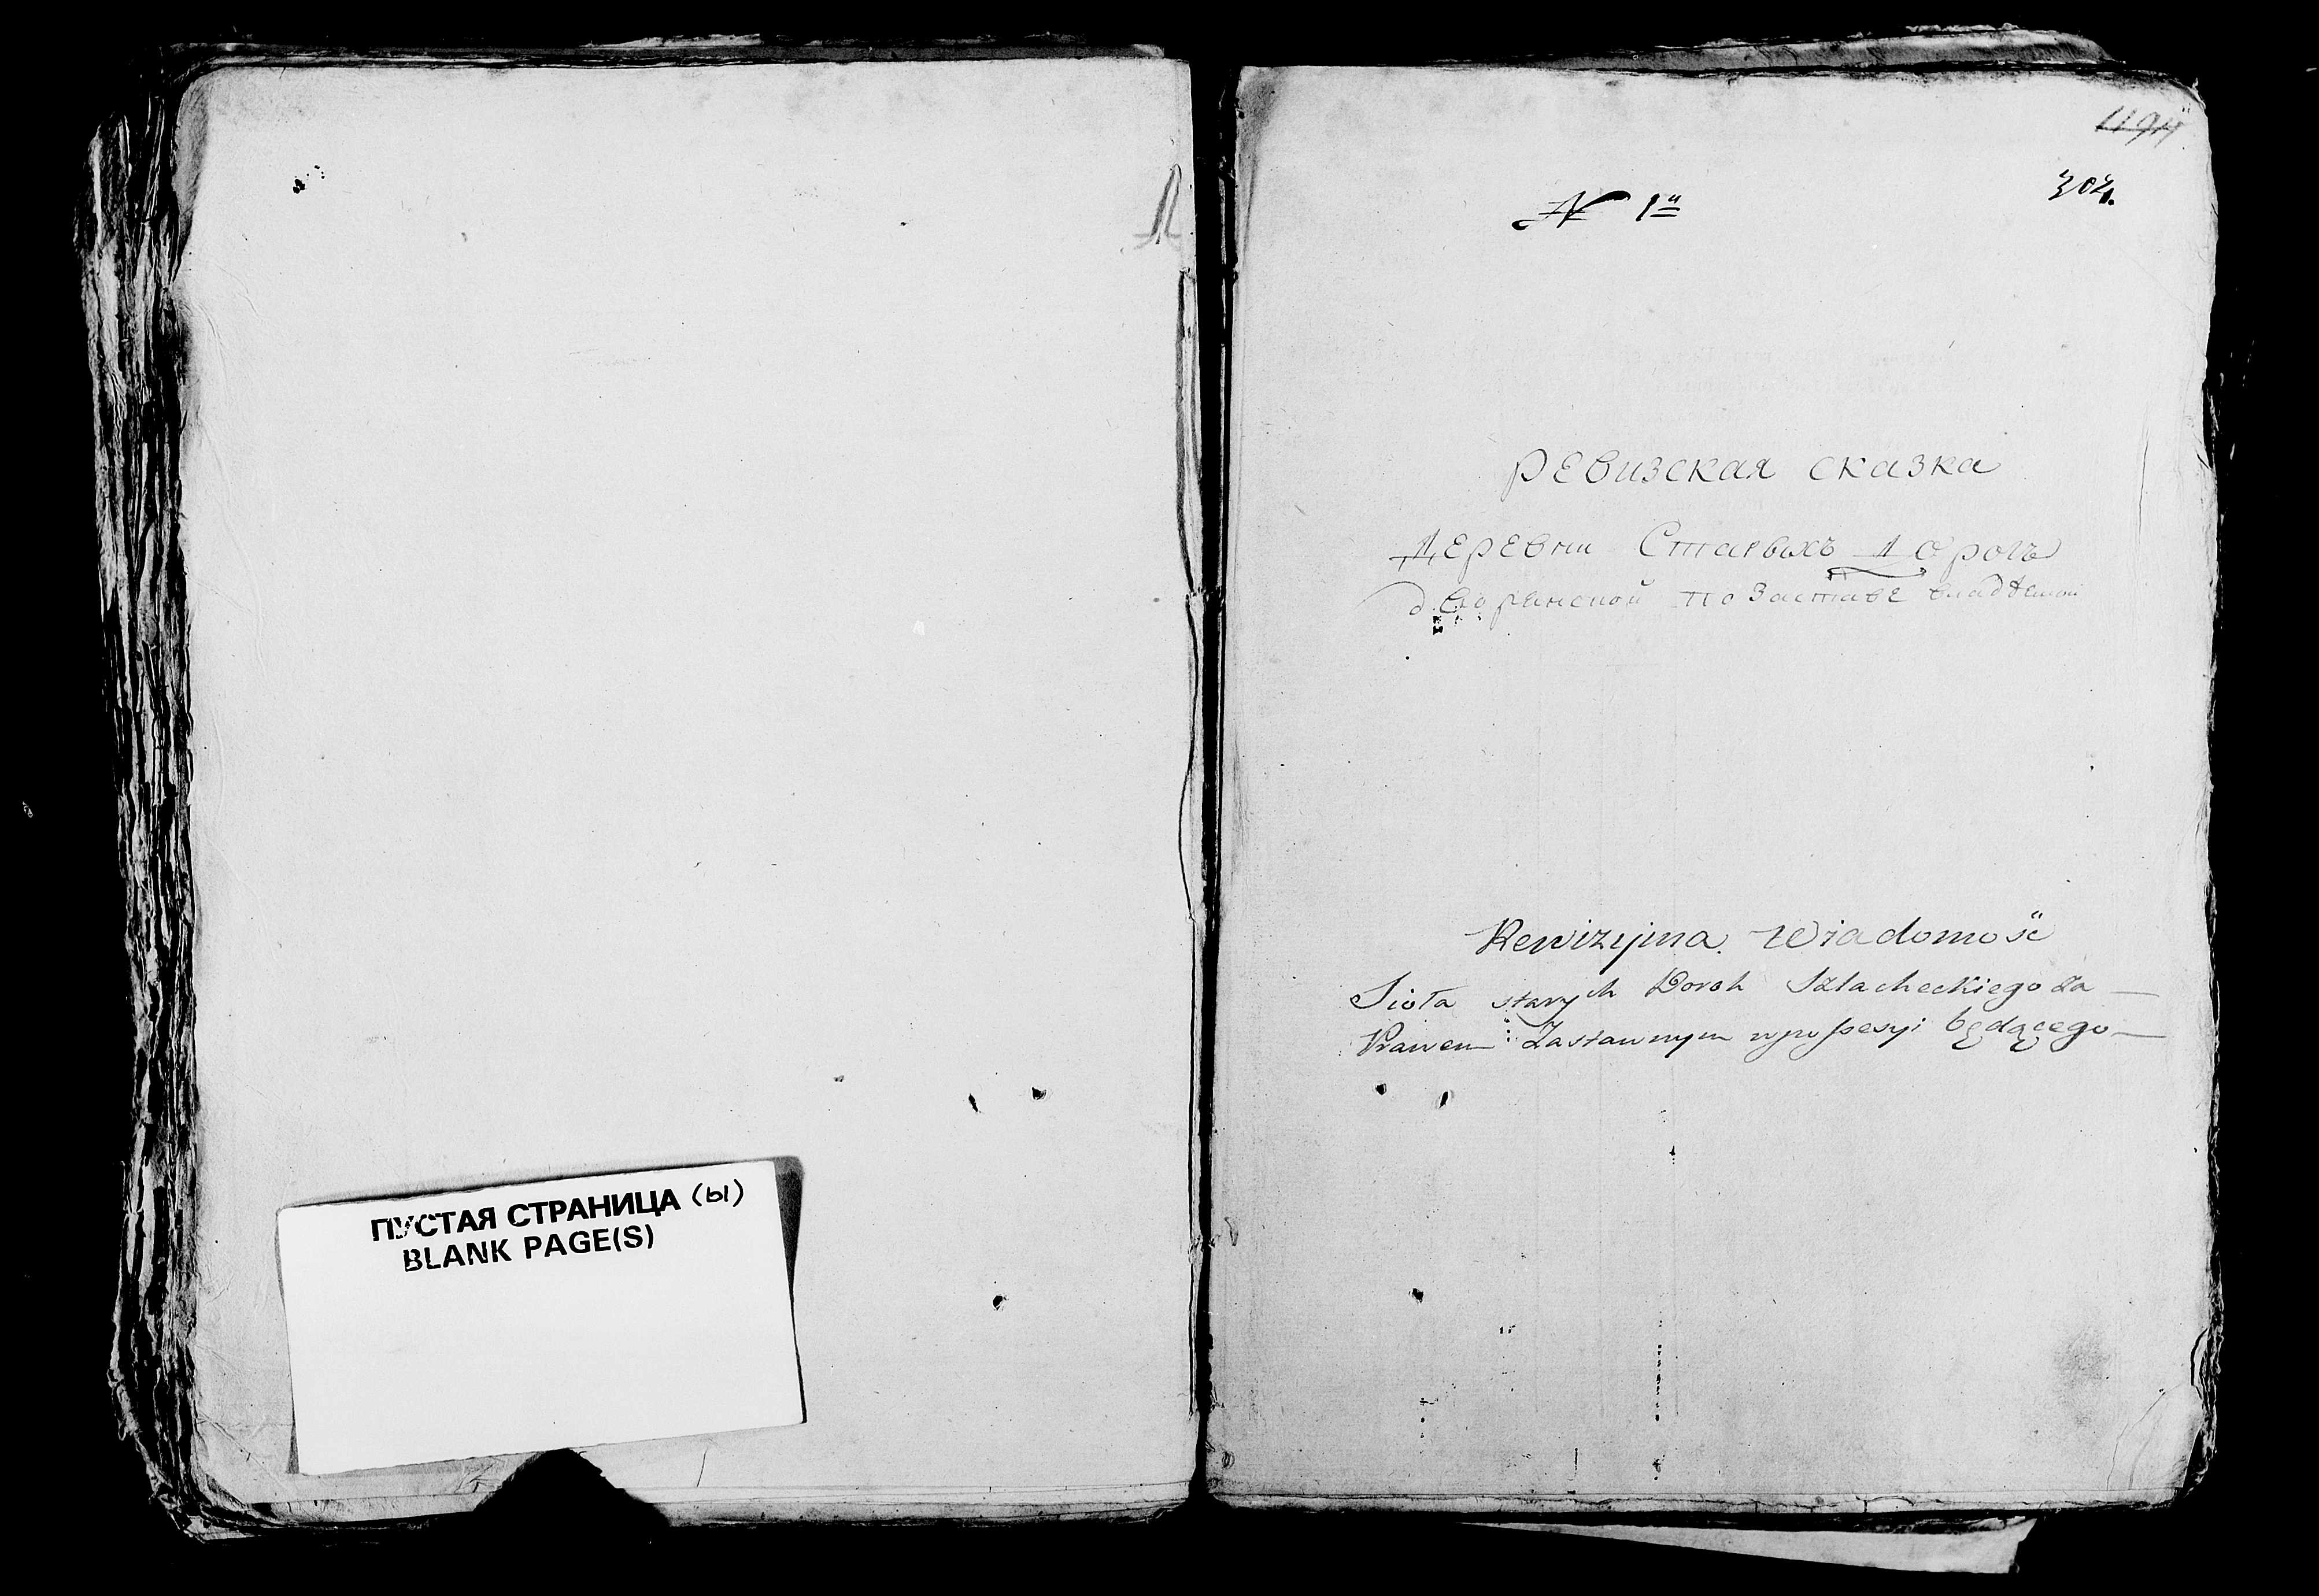 ПУСТАЯ СТРАНИЦА (ы)
BLANK PAGE(S)
1194
302.
N 1й
Ревизская сказка
Деревни Старыхъ Дорогъ
дворянской по заставе владѣемой
Rewizyina Wiadomość
Sioła starych Doroh Szlacheckiego za
Prawem Zastawnym w possesyi będącego